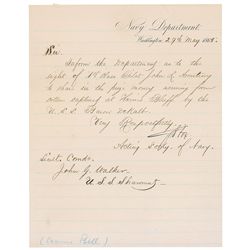 Navy Department
Washington, 29th May 1865.
Sir
Inform the Department as to the
right of 1st Class John L.
to share in the prize money accruing from
cotton captured at Bluff by the
U.S.S. Baron DeKalb.
Very Respectfully
G V Fox
Acting Secty. of Navy.
Lieut. Comdr.
John G. Walker
U.S.S. Shawmut